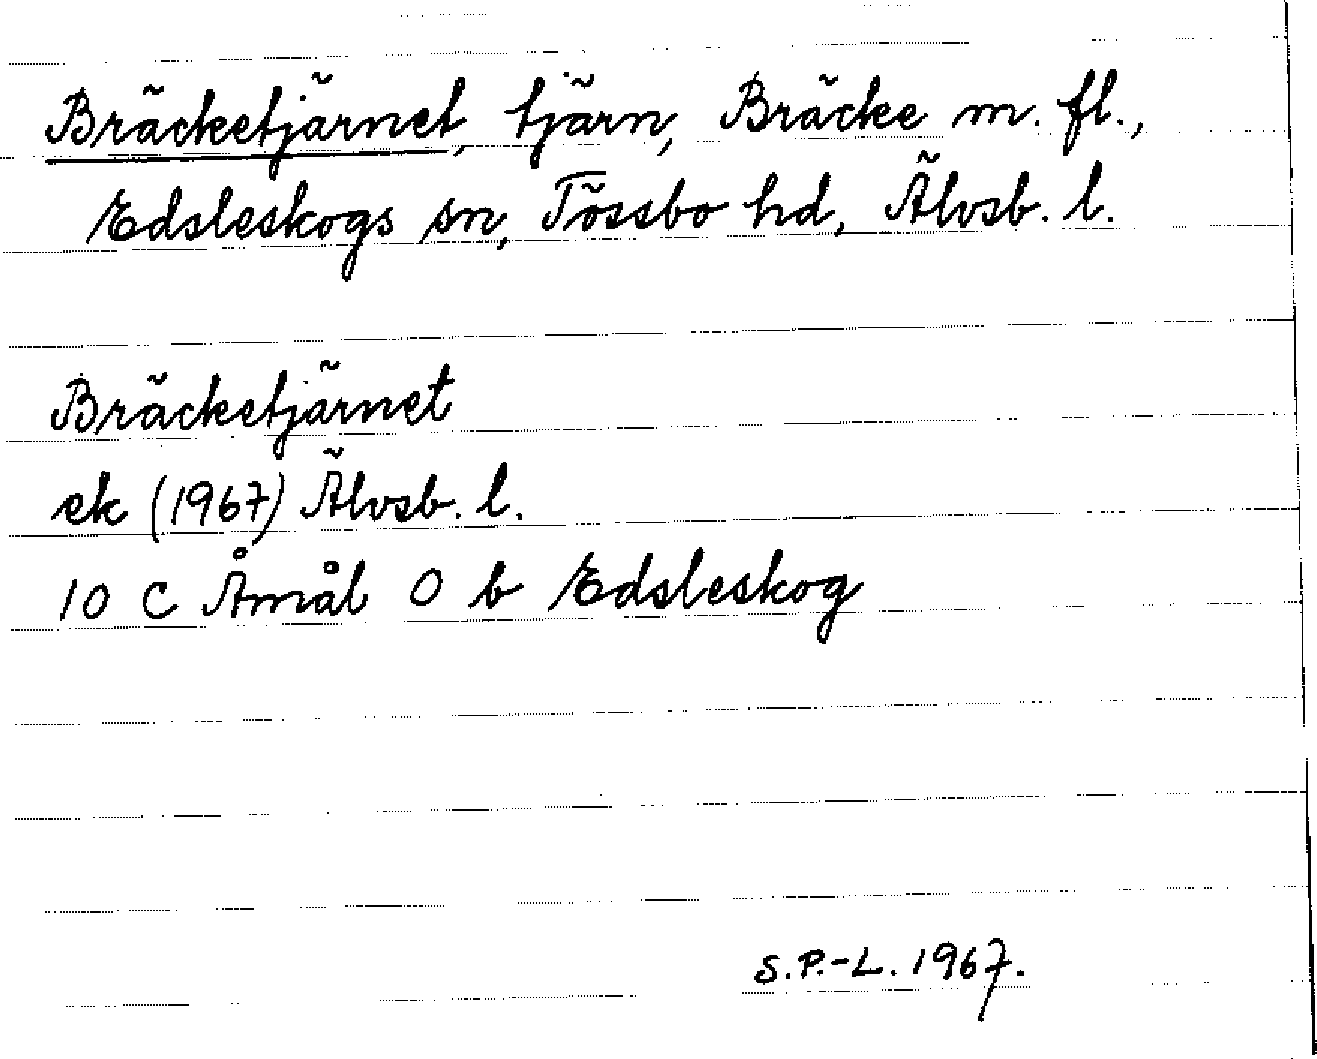 Bräcketjärnet, tjärn, Bräcke m. fl.,
Edsleskogs sn, Tössbo hd, Älvsb. l.
Bräcketjärnet
ek (1967) Älvsb. l.
10 C Åmål O b Edsleskog
S.P.-L. 1967.